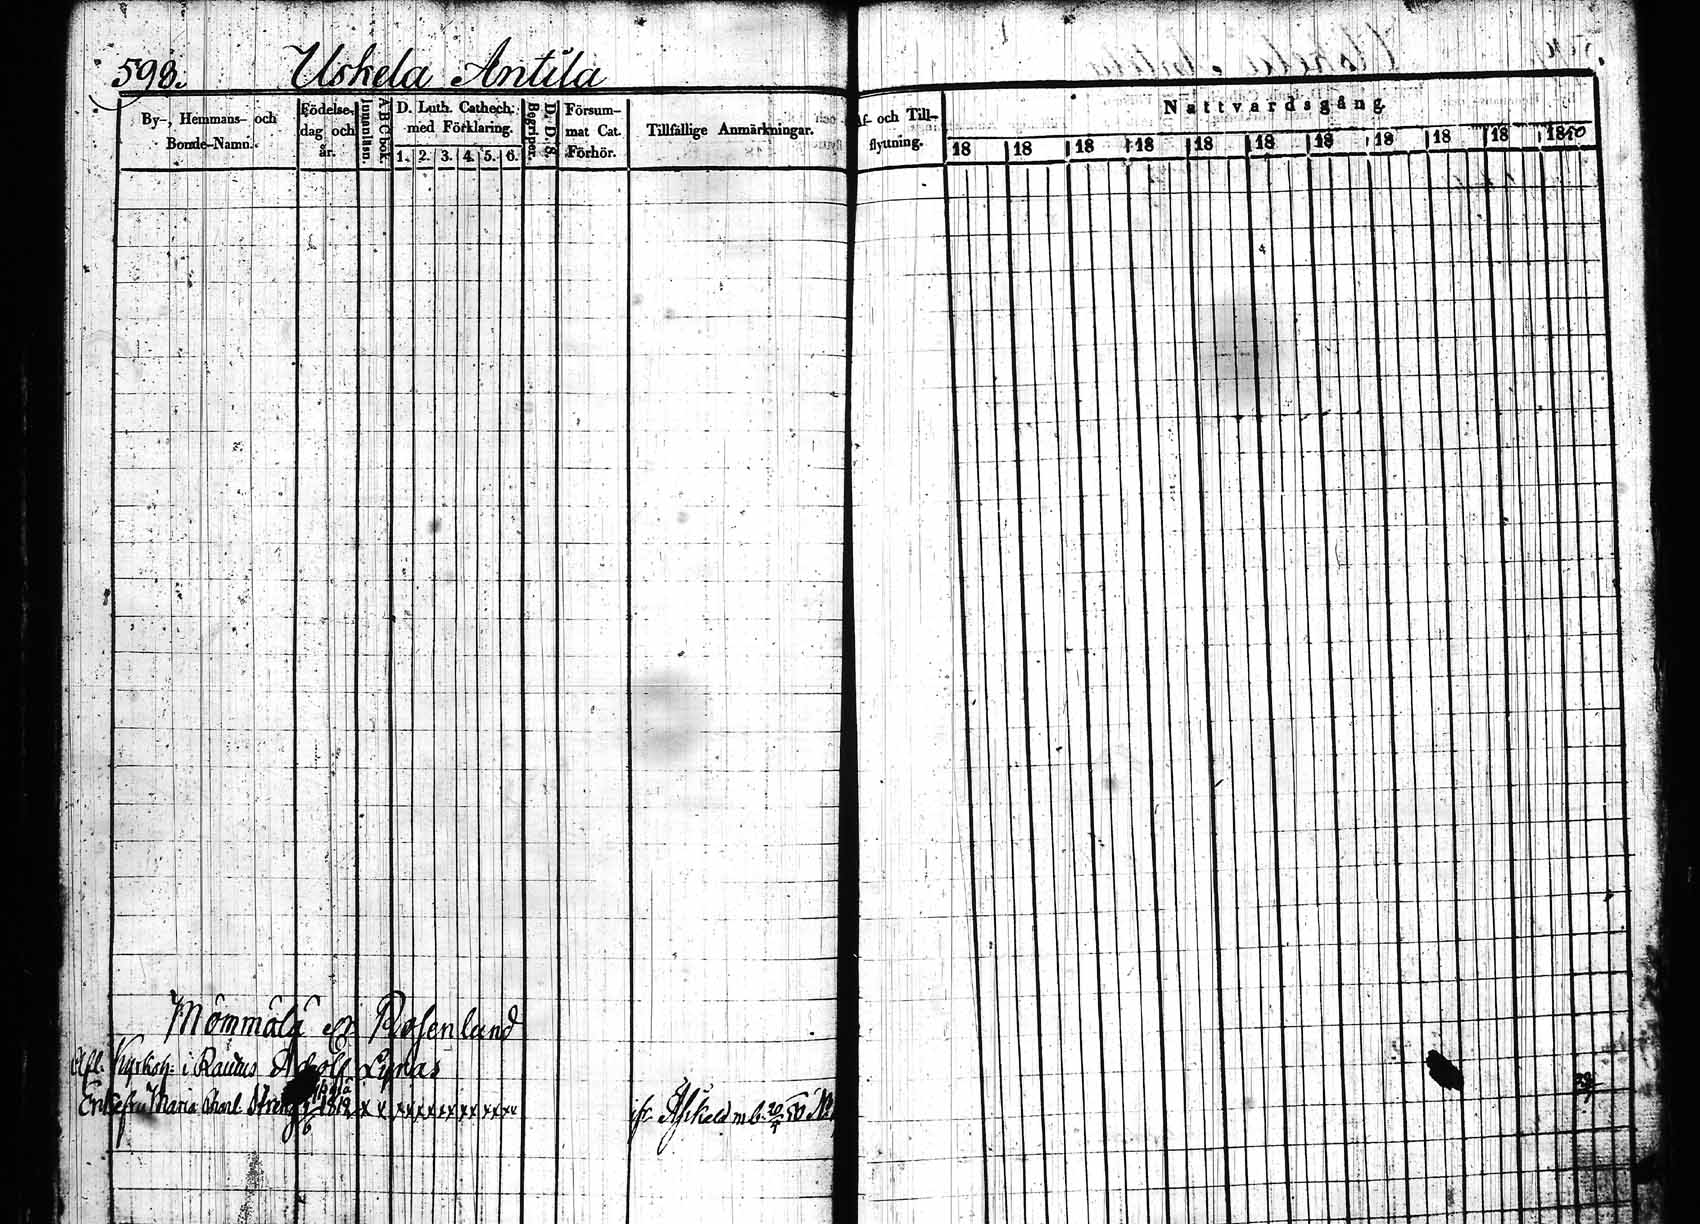 598. Uskela Antila
By-, Hemmans- och Bonde-Namn.
Födelse-dag och år.
Innanläsn.
ABCbok
D. Luth. Cathech. med Förklaring.
1. 2. 3. 4. 5. 6.
D. D. S.
Begriper.
Försum-mat Cat. Förhör.
Tillfällige Anmärkningar.
Af- och Till-flyttning.
Nattvardsgång
18 18 18 18 18 18 18 18 18 18 1850
Mommala Rosenlund
Afl. i Rautus Adolf
Enkefru Maria Charl. 1812 x x x x x x x x x x